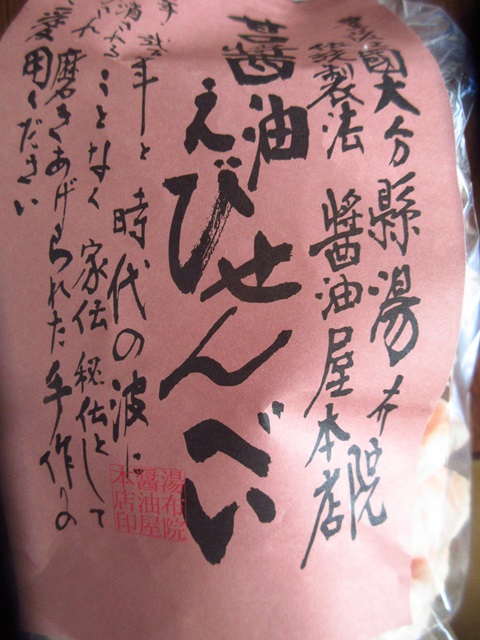 豊後國大分縣湯布院
製法 醤油屋本店
甘醤油
えびせんべい
年と時代の波に
ことなく 家伝秘伝として
磨きあげられた手作りの
ご愛用ください
湯布院
醤油屋
本店印